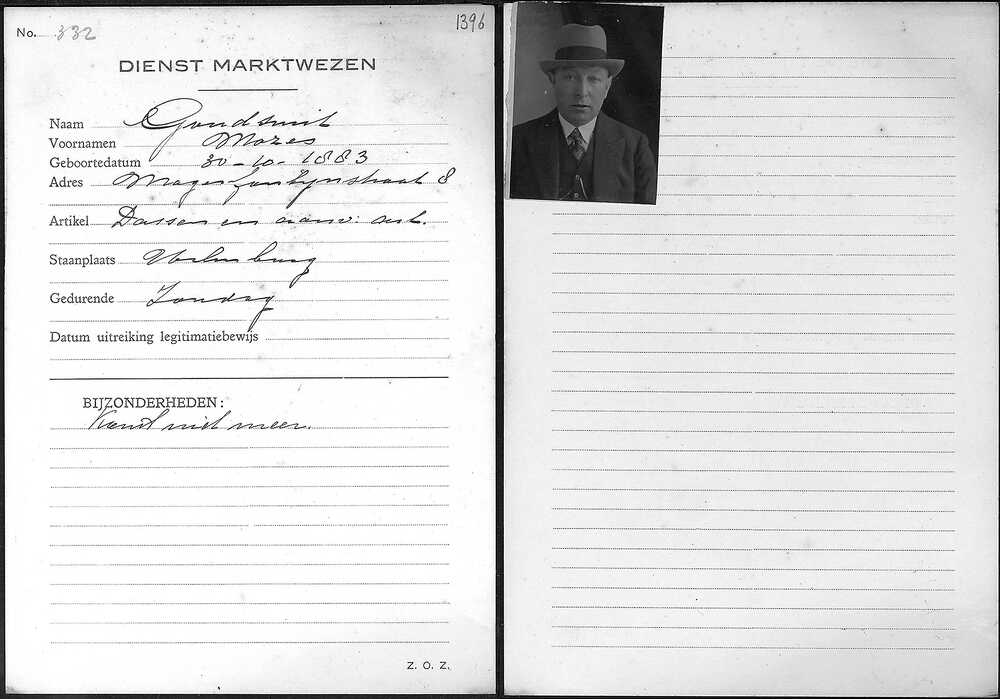 No. 332
1396
DIENST MARKTWEZEN
Naam Goudsmit
Voornamen Mozes
Geboortedatum 30-10-1883
Adres Magerfonteinstraat 8
Artikel Dassen en aanv. art.
Staanplaats Uilenburg
Gedurende Zondag
Datum uitreiking legitimatiebewijs
BIJZONDERHEDEN:
Komt niet meer.
Z. O. Z.